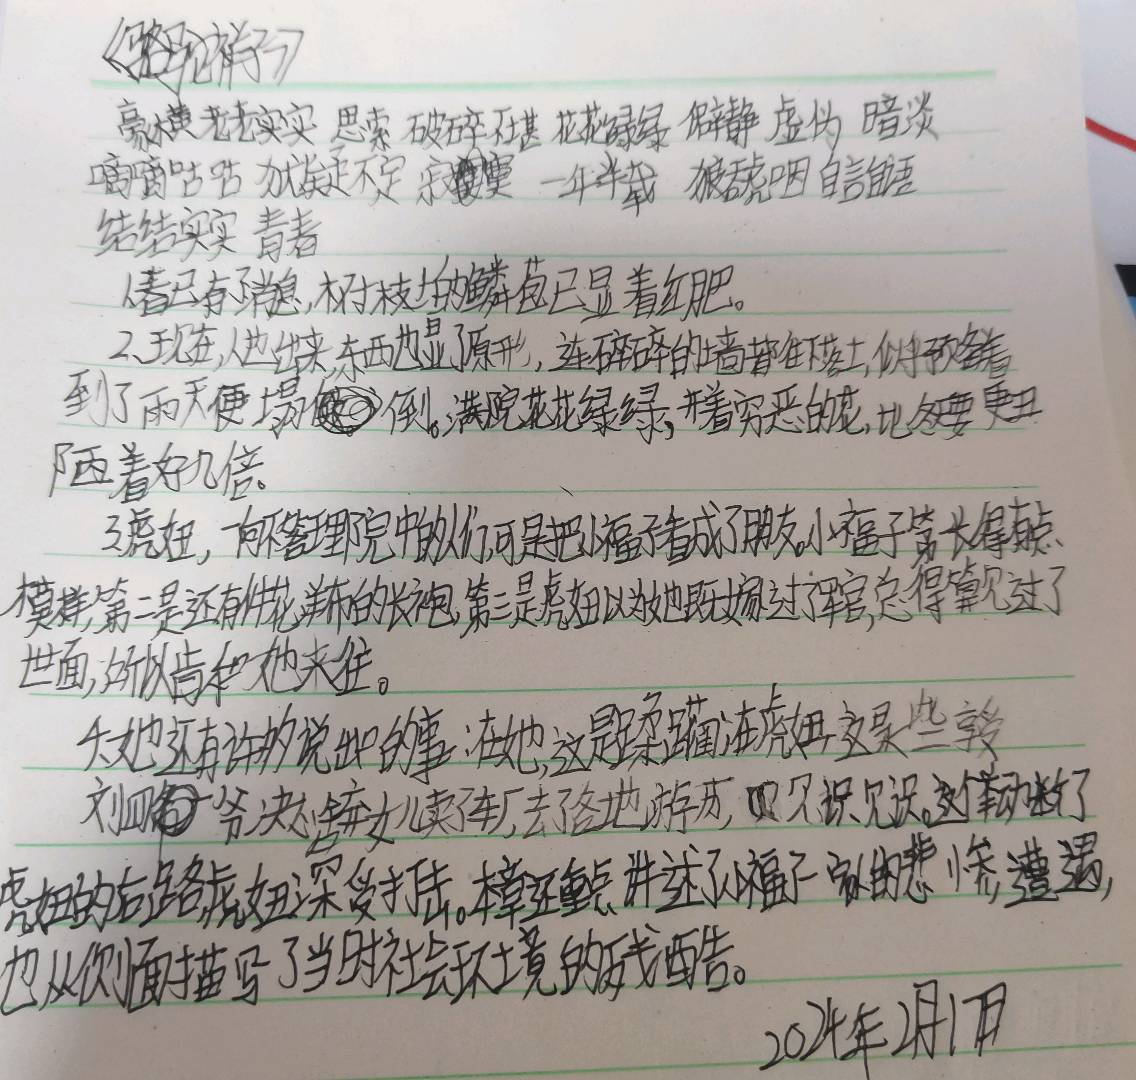 《骆驼祥子》
豪横 老老实实 思索 破碎不堪 花花绿绿 僻静 虚伪 暗淡
嘀嘀咕咕 犹疑不定 寂寞 一年半载 狼吞虎咽 自言自语
结结实实 青着
1.春已有了消息,树枝上的鳞苞已显着红肥。
2.现在,人也出来,东西也显了原形,连碎碎的墙都往下落土,似乎预备着
到了雨天便塌倒。满院花花绿绿,开着穷恶的花,比冬天要更丑
陋着好几倍。
3.虎妞,一向不答理院中的人们,可是把小福子看成了朋友。小福子第一长得有点
模样,第二是还有件花洋布的长袍,第三是虎妞以为她既嫁过了军官,总得算见过了
世面,所以肯和她来往。
4.她还有许多说不出的事:在她,这是蹂躏;在虎妞,这是些享受
刘四爷决心舍弃女儿卖了车厂,去了各地游历,见识见识。这个举动断了
虎妞的后路,虎妞深受打击。本章还重点讲述了小福子一家的悲惨遭遇,
也从侧面描写了当时社会环境的残酷。
2024年2月17日